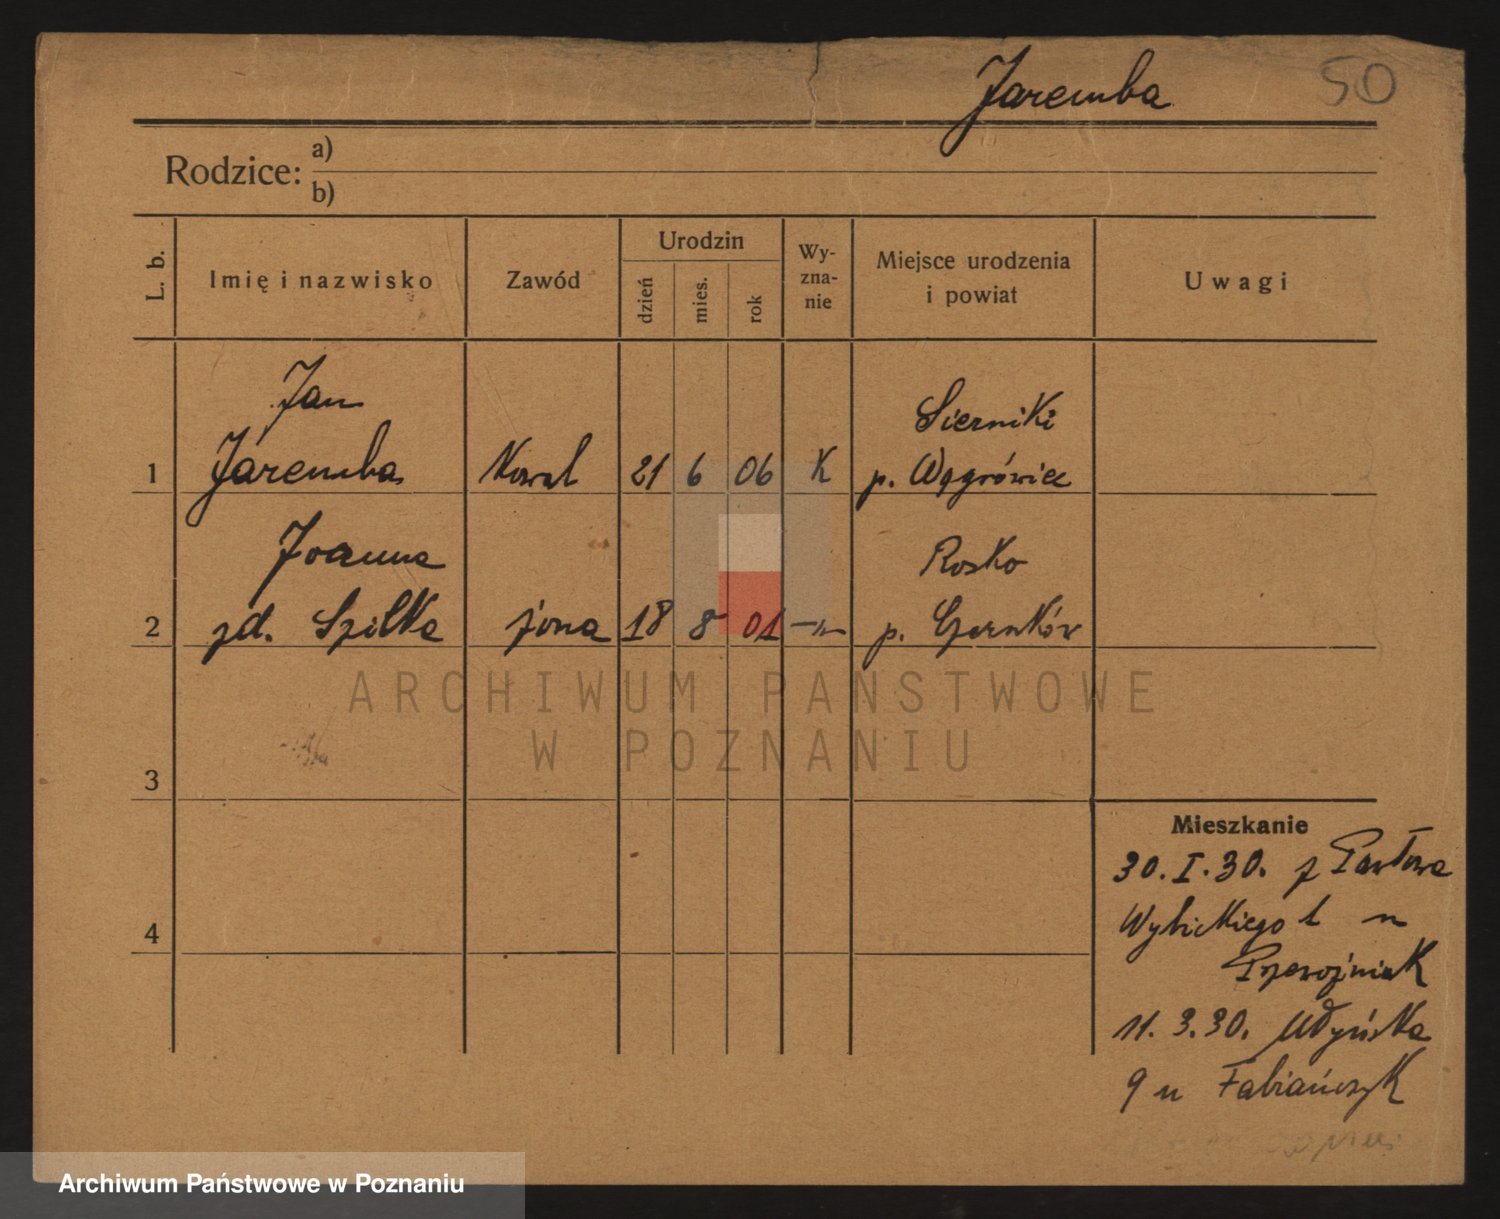 Jaremba
50
Rodzice: a)
b)
L. b.
Imię i nazwisko
Zawód
Urodzin
dzień
mies.
rok
Wy-
zna-
nie
Miejsce urodzenia
i powiat
Uwagi
Jan
Sierniki
1 Jaremba Kowal 21 6 06 K p. Wągrówiec
Joanna
Rosko
2 zd. Szilka żona 18 8 01 -"- p. Czarnków
ARCHIWUM PAŃSTWOWE
W POZNANIU
3
4
Mieszkanie
30. I. 30. z Pawłowa
Wybickiego u
11. 3. 30.
9 u Fabiańczyk
Archiwum Państwowe w Poznaniu